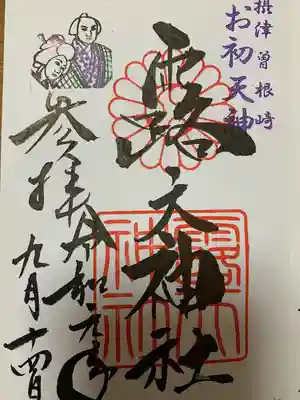 摂津曽根崎
お初天神
露天神社
参拝令和元年
九月十四日